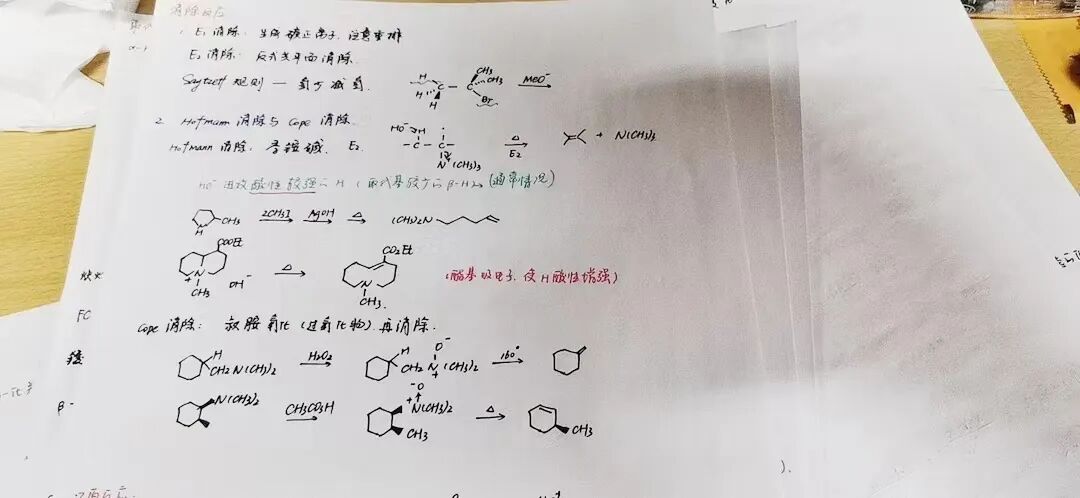 消除反应
1. E₁ 消除: 生成碳正离子, 注意重排
E₂ 消除: 反式共平面消除.
Saytzeff 规则 — 氢少减氢.
H H H C — C CH₃ CH₃ Br MeO⁻
2. Hofmann 消除与 Cope 消除.
Hofmann 消除: 季铵碱. E₂.
HO⁻ H -C-C- N⁺(CH₃)₃ △ E₂ + N(CH₃)₃
HO⁻ 进攻酸性较强的 H (取代基较少的 β-H). (通常情况)
N H CH₃ 2CH₃I AgOH △ (CH₃)₂N
COOEt N + CH₃ OH⁻ △ CO₂Et N CH₃
(酯基吸电子, 使 H 酸性增强)
Cope 消除: 叔胺氧化 (过氧化物), 再消除.
H CH₂N(CH₃)₂ H₂O₂ H O⁻ CH₂N(CH₃)₂ + 160°
N(CH₃)₂ CH₃CO₃H ⁻O + N(CH₃)₂ CH₃ △ CH₃
FC
β-